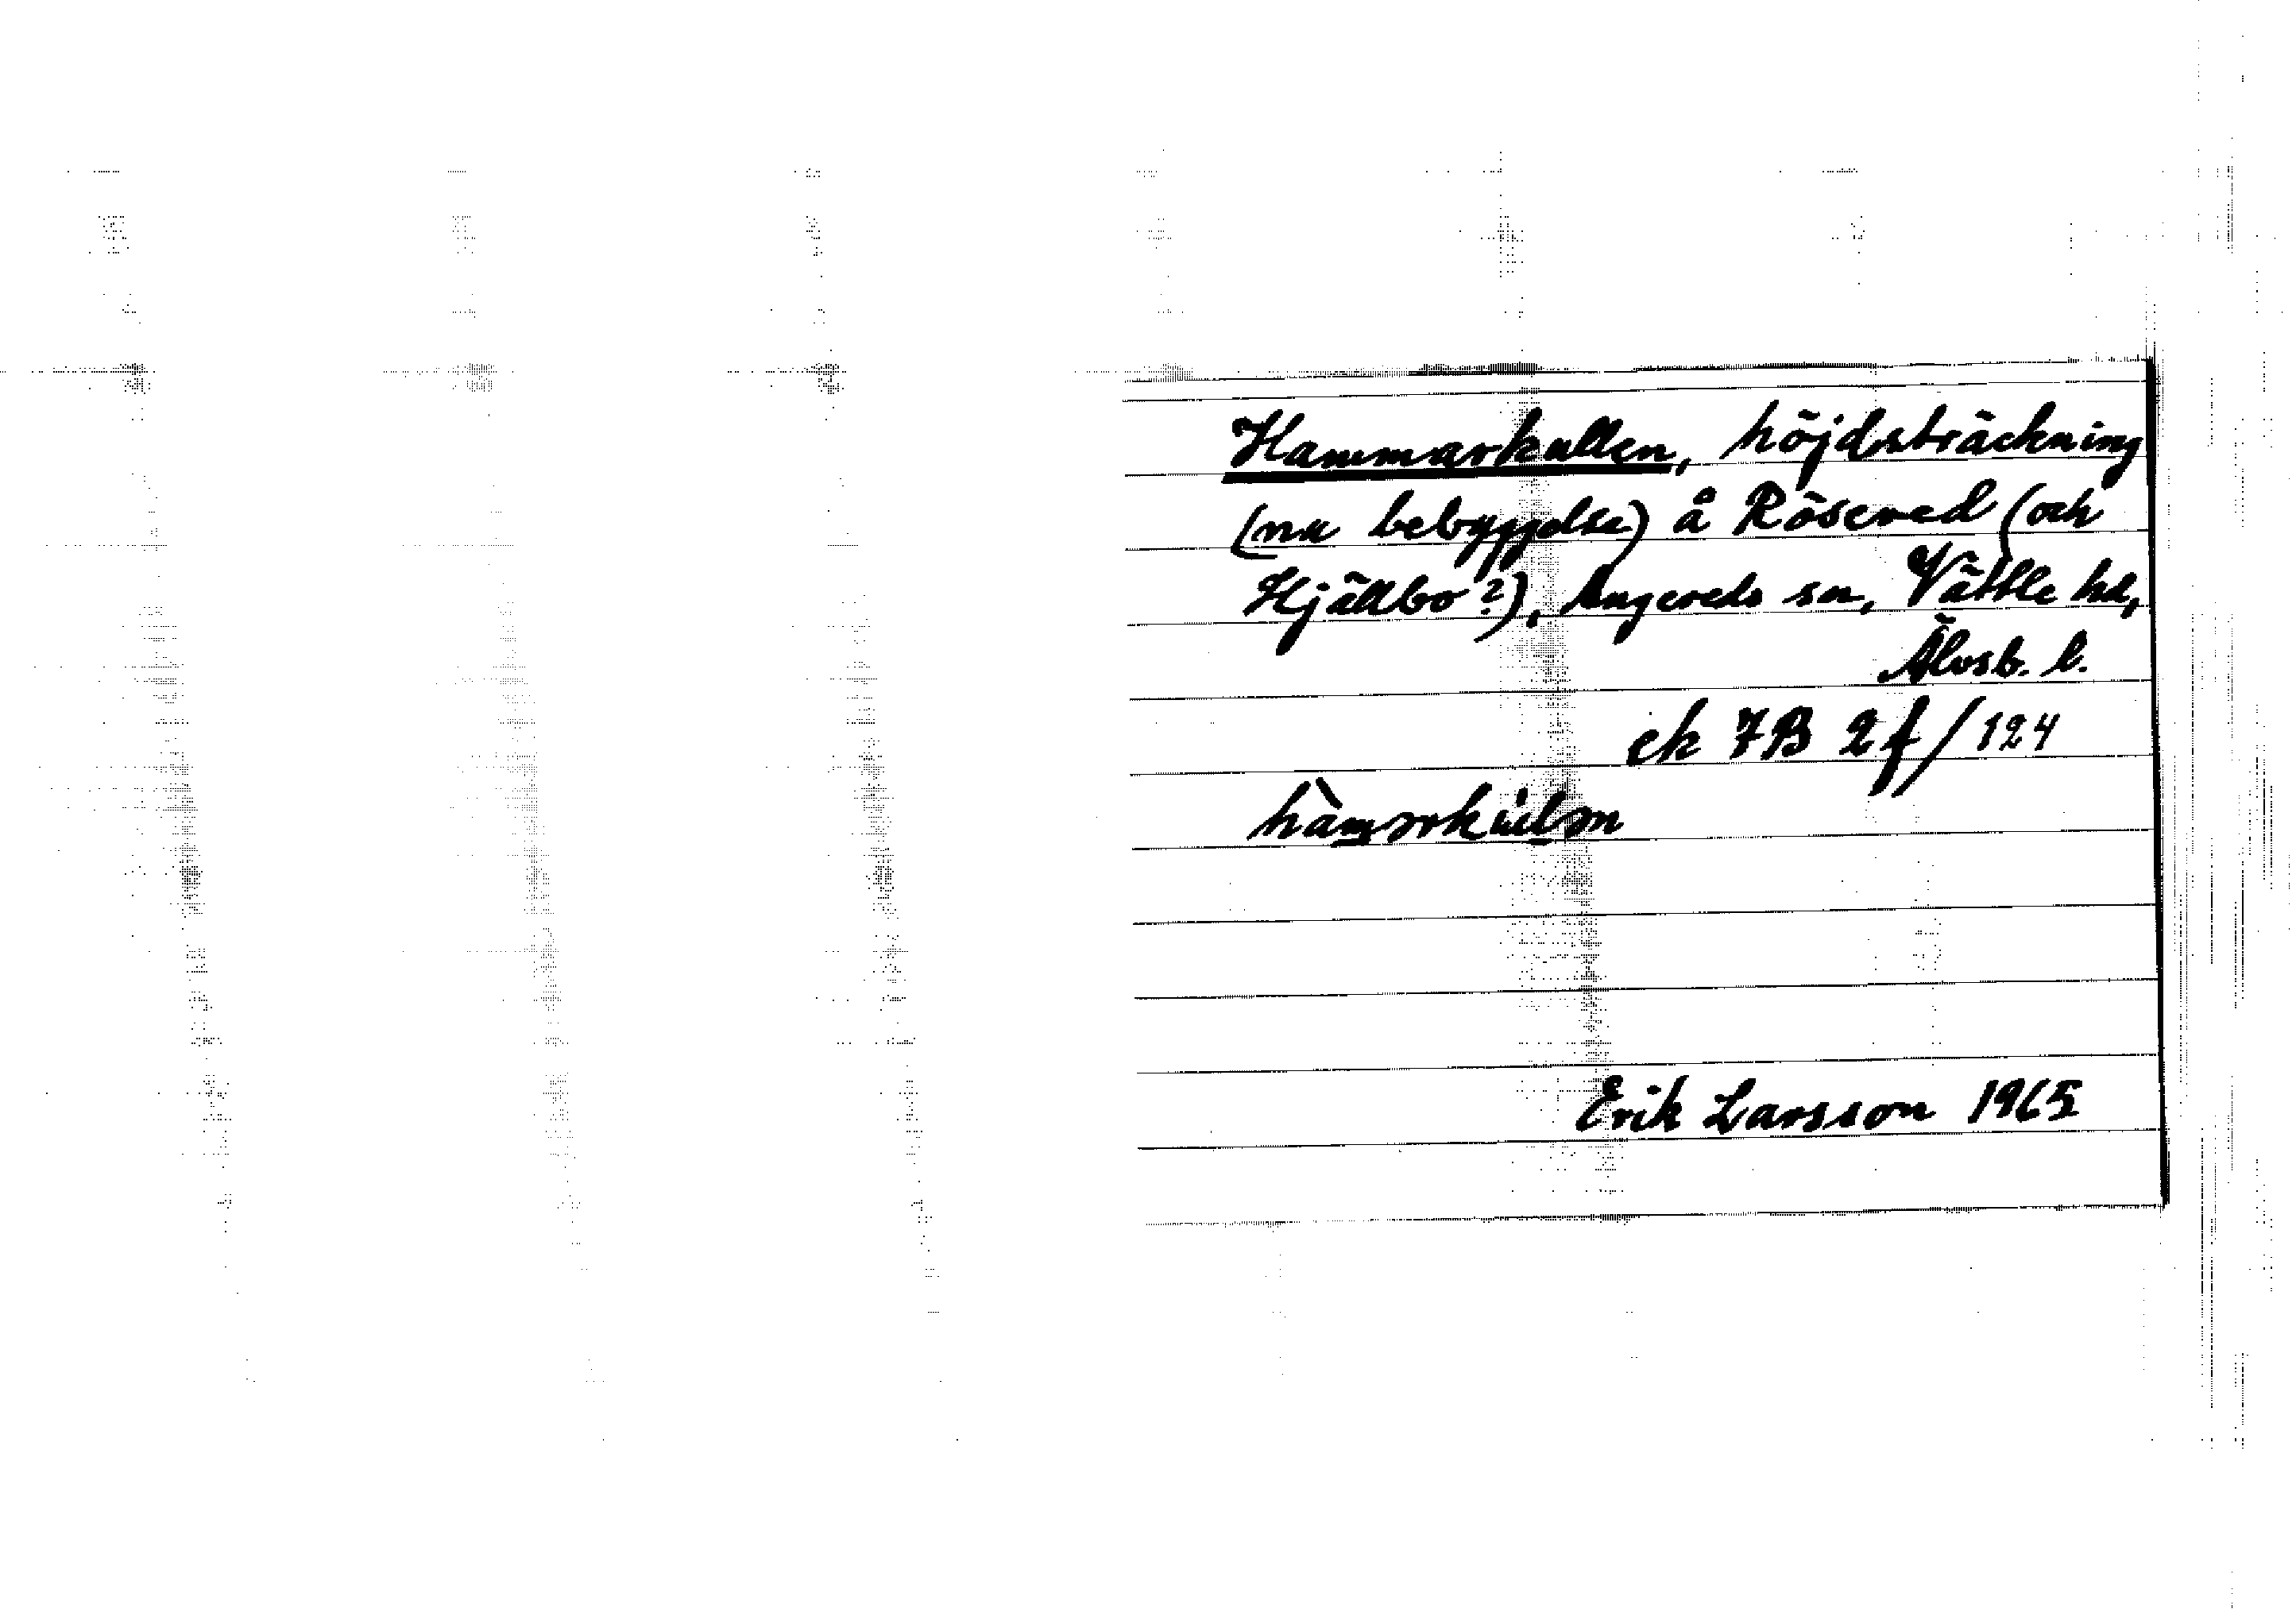 Hammarkullen, höjdsträckning
(nu bebyggelse) å Rösered (och
Hjällbo?), Angereds sn, Vättle hd,
Älvsb. l.
ek 7B 2f/124
Erik Larsson 1965